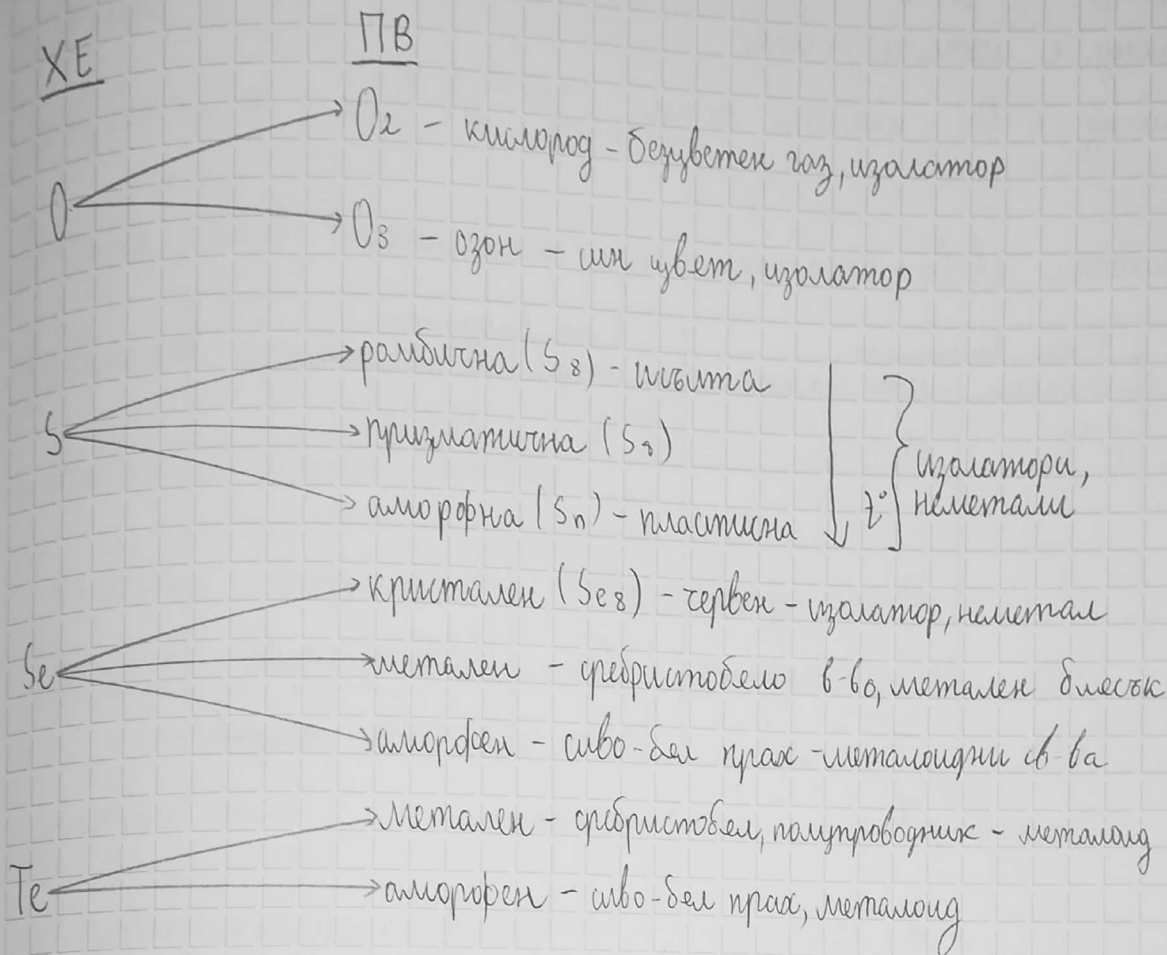 ХЕ ПВ
O₂ - кислород - безцветен газ, изолатор
O
O₃ - озон - син цвят, изолатор
ромбична (S₈) - жълта
S призматична (S₈)
изолатори,
аморфна (Sn) - пластична t° неметали
кристален (Se₈) - червен - изолатор, неметал
Se метален - сребристобяло в-во, метален блясък
аморфен - сиво-бял прах - металоидни св-ва
метален - сребристобял, полупроводник - металоид
Te аморфен - сиво-бял прах, металоид